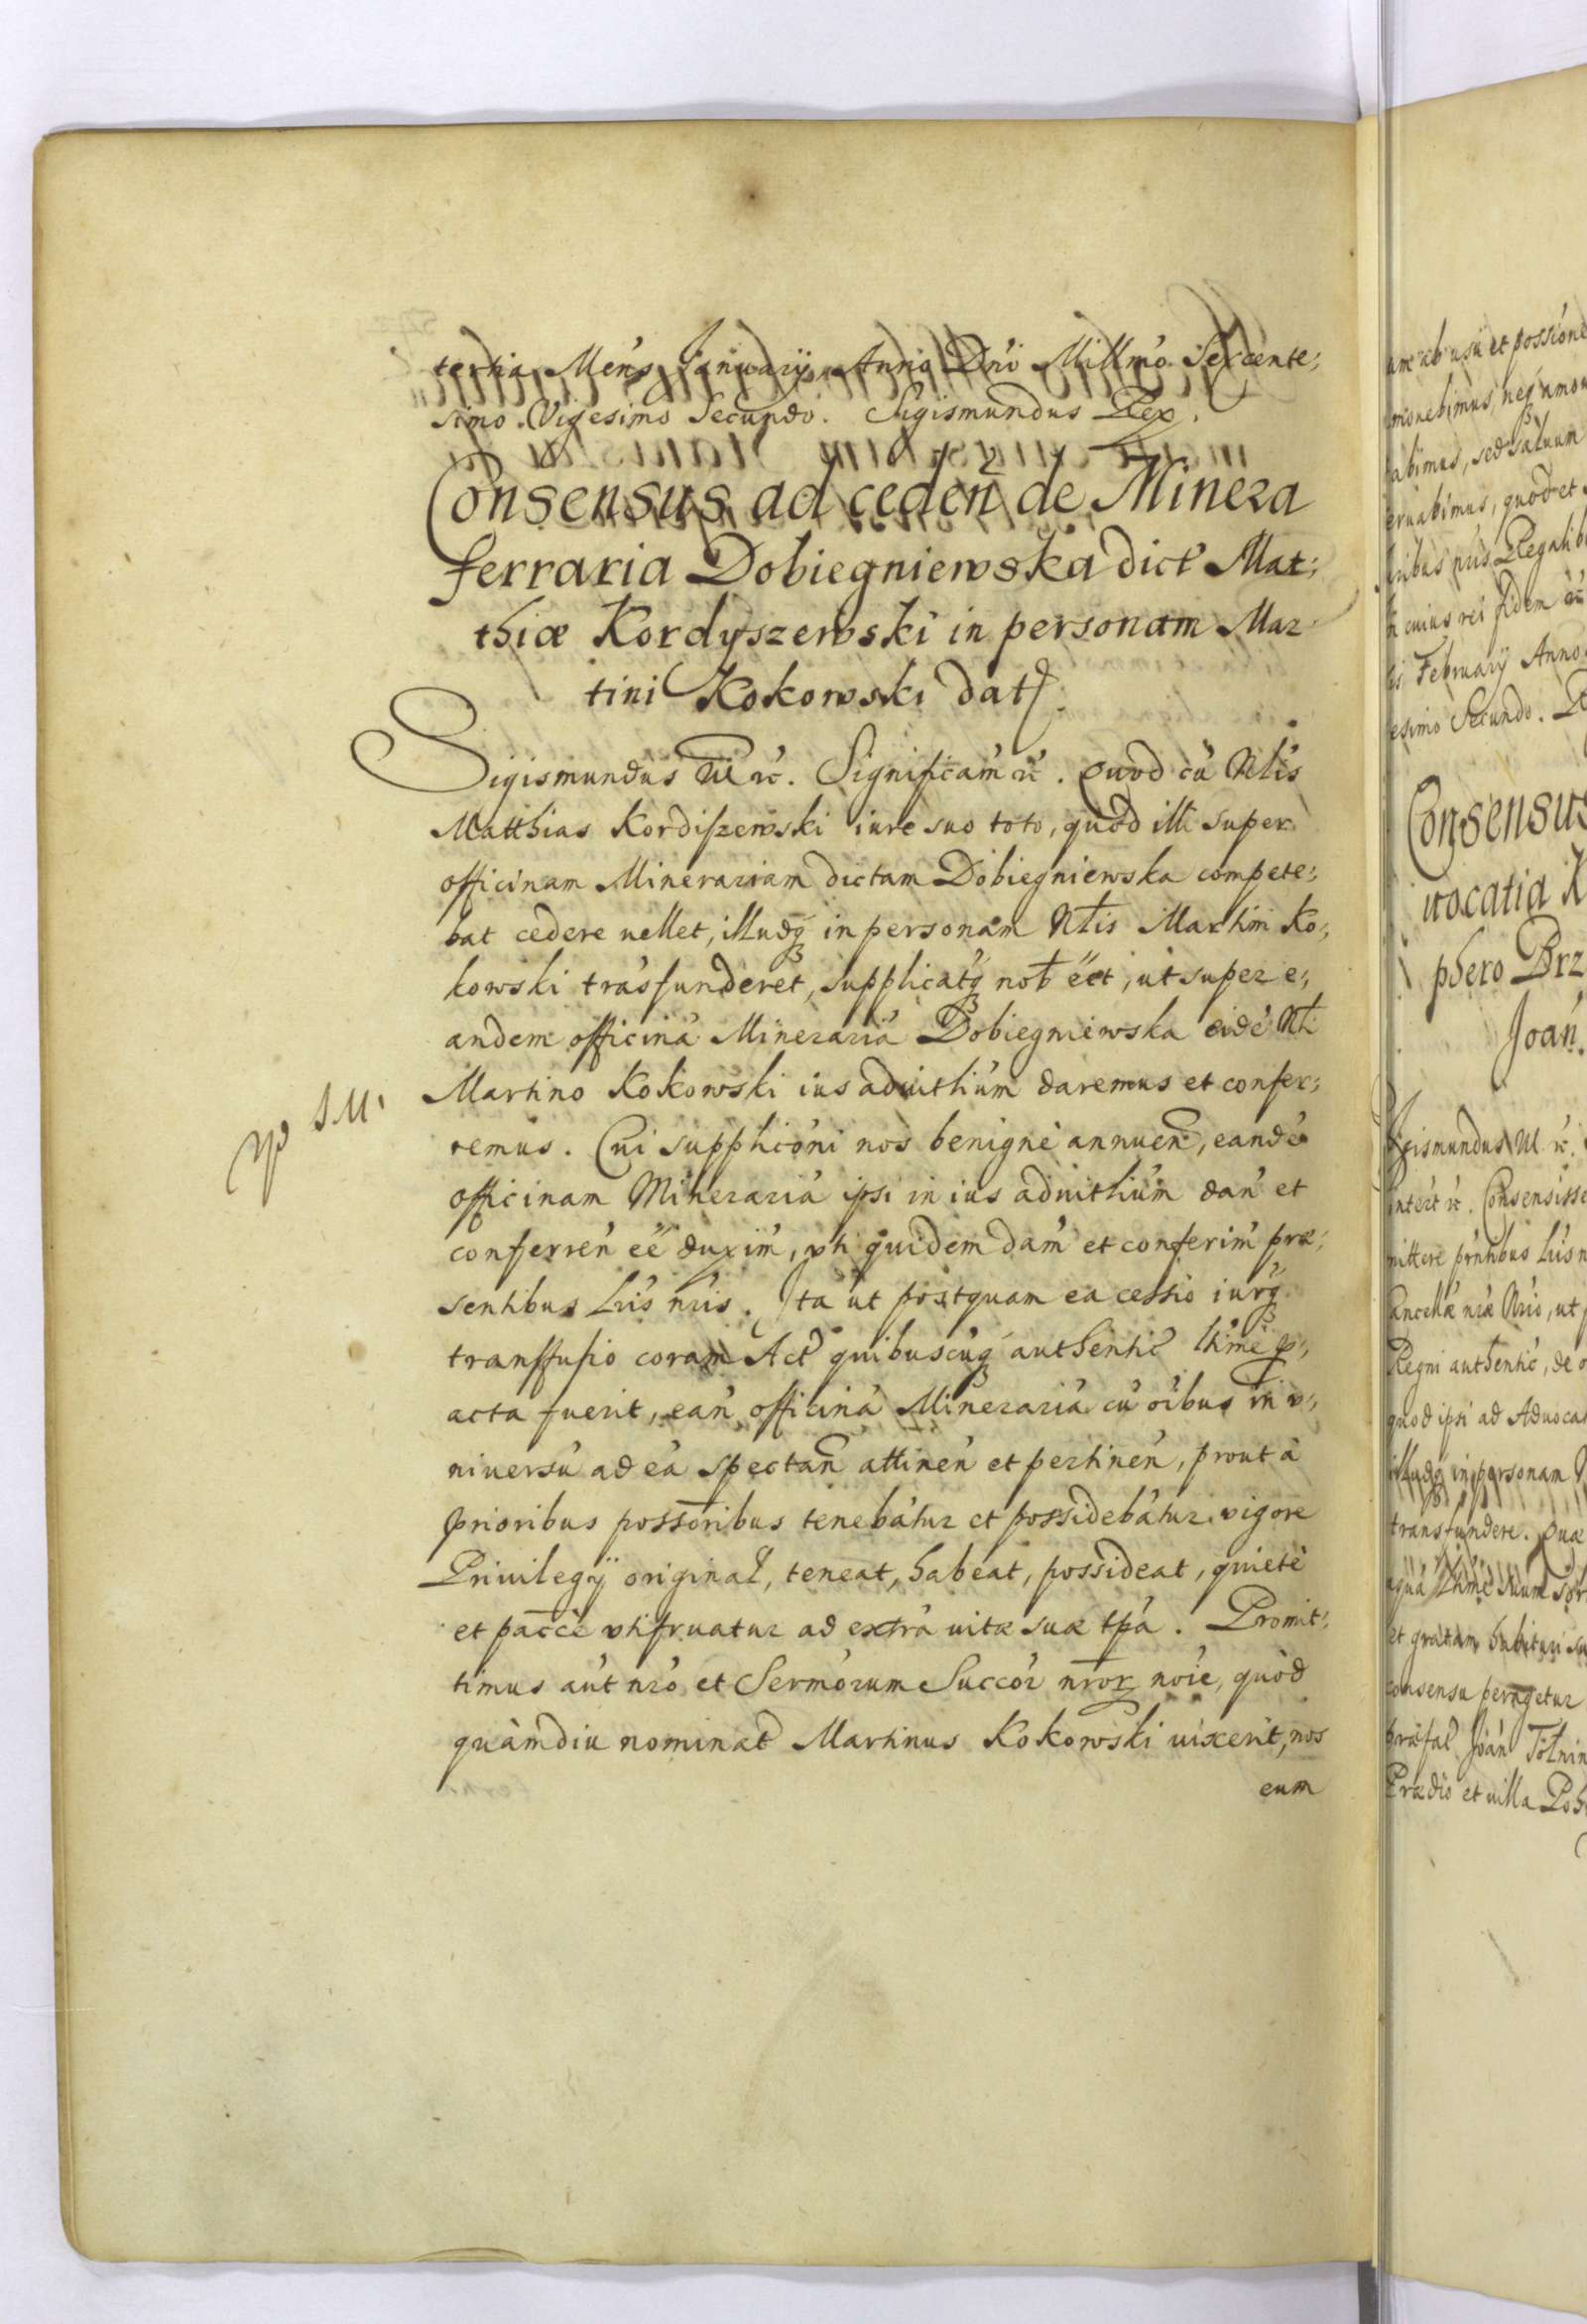 tertia Mens Januarÿ, Anno Dni Millmo Sexcente;
simo Vigesimo Secundo. Sigismundus Rex.
Consensus ad ceden de Minera
ferraria Dobiegniewska dict Mat;
thiæ Kordyszewski in personam Mar
tini Kokowski dat.
Sigismundus III rc. Significam rc. Quod cu Nlis
Matthias Kordiszewski iure suo toto, quod illi super
officinam Minerariam dictam Dobiegniewska compete;
bat cedere uellet, illudq in personam Nlis Martini Ko;
kowski trasfunderet, supplicatq nob eet, ut super e;
andem officina Mineraria Dobiegniewska eide Nli
Martino Kokowski ius aduitliúm daremus et confer;
remus. Cui supplicóni nos benignè annuen, eande
officinam Mineraria ipsi in ius aduitliúm dan et
conferren eé duxim, vti quidem dam et conferim præ;
sentibus Lris nris. Ita ut postquam ea cessio iurq
transfusio coram Act quibuscuq authentic ltime p;
acta fuerit, ean officina Mineraria cu oibus in v;
niuersu ad ea spectan attinen et pertinen, prout à
prioribus possoribus tenebatur et possidebatur vigore
Priuilegÿ original, teneat, habeat, possideat, quietè
et paccè vtifruatur ad extra uitæ suæ tpa. Promit;
timus aut nro et Sermorum Succor nror noie, quòd
quàmdiu nominat Martinus Kokowski uixerit, nos
eum
am ab usu et possione
mouebimus, neq amou
abimus, sed saluum
eruabimus, quod et
ribus nris Regalib
n cuius rei fidem
is Februarÿ Anno
esimo Secundo.
Consensus
uocatia K
phero Brz
Joán.
Sigismundus III rc.
intert rc. Consensisse
mittere pntibus Lris n
Cancellæ nræ Nrio, ut
Regni authentic, de
quod ipsi ad Aduocat
illudq in personam
transfundere. Quæ
et gratam habituri
consensu peragetur
præfat Joán
Prædio et uilla